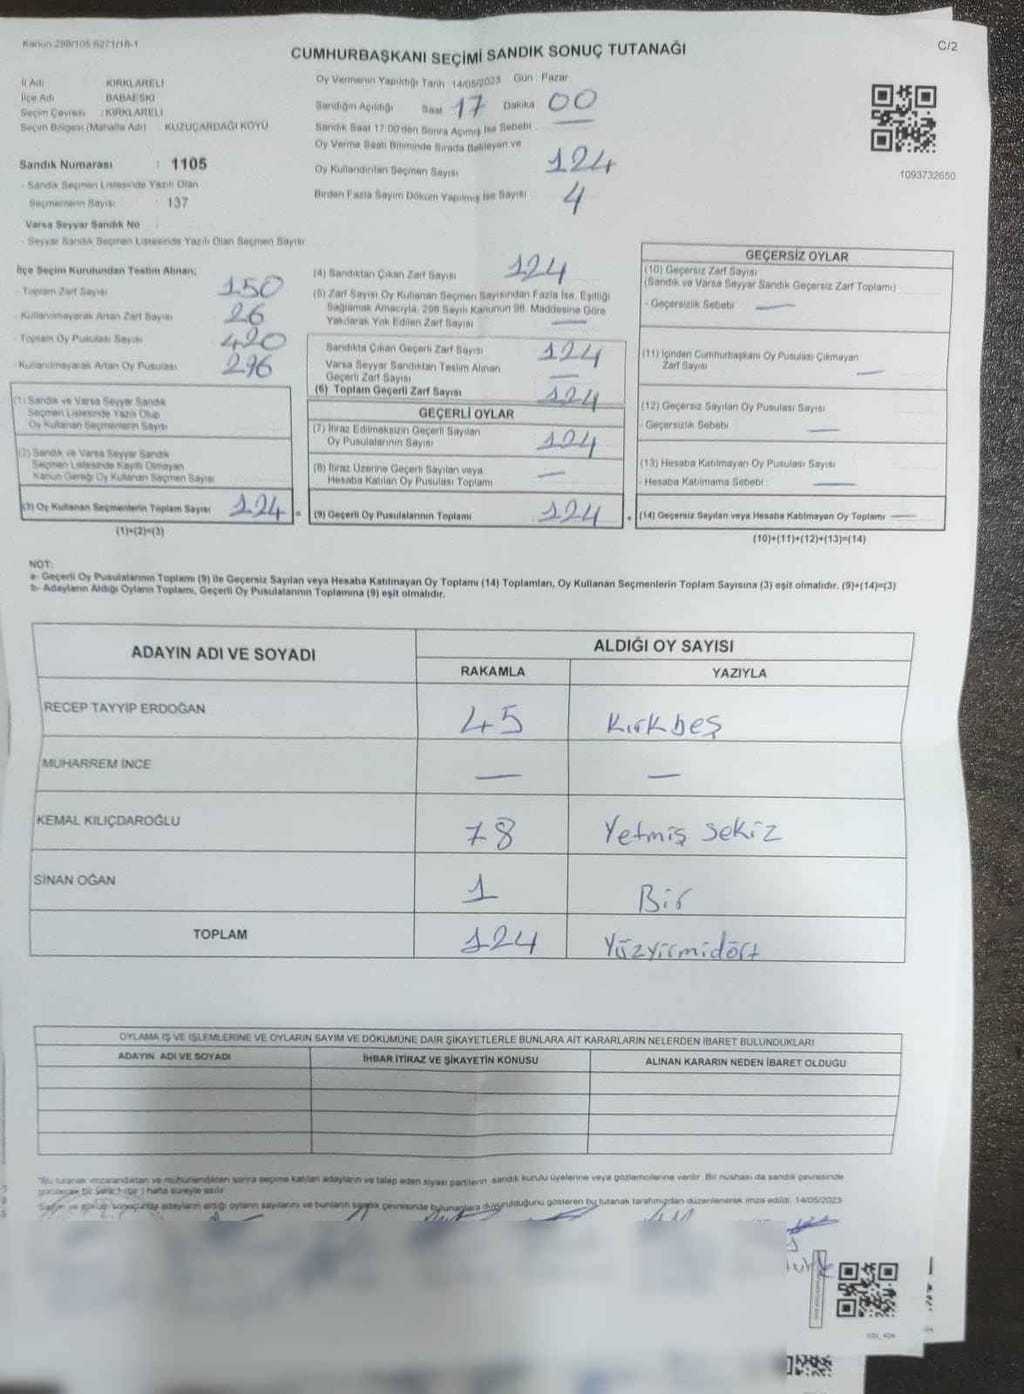 Kanun:298/105 6271/18-1
C/2
CUMHURBAŞKANI SEÇİMİ SANDIK SONUÇ TUTANAĞI
İl Adı KIRKLARELİ
İlçe Adı BABAESKİ
Seçim Çevresi : KIRKLARELİ
Seçim Bölgesi (Mahalle Adı) KUZUÇARDAĞI KÖYÜ
Oy Vermenin Yapıldığı Tarih 14/05/2023 Gün Pazar
Sandığın Açıldığı Saat 17 Dakika 00
Sandık Saat 17:00'den Sonra Açılmış İse Sebebi
Oy Verme Saati Bitiminde Sırada Bekleyen ve
Oy Kullandırılan Seçmen Sayısı 124
Birden Fazla Sayım Döküm Yapılmış İse Sayısı 4
1093732650
Sandık Numarası : 1105
- Sandık Seçmen Listesinde Yazılı Olan
Seçmenlerin Sayısı : 137
Varsa Seyyar Sandık No
- Seyyar Sandık Seçmen Listesinde Yazılı Olan Seçmen Sayısı
İlçe Seçim Kurulundan Teslim Alınan;
- Toplam Zarf Sayısı 150
- Kullanılmayarak Artan Zarf Sayısı 26
- Toplam Oy Pusulası Sayısı 420
- Kullanılmayarak Artan Oy Pusulası 296
(1) Sandık ve Varsa Seyyar Sandık
Seçmen Listesinde Yazılı Olup
Oy Kullanan Seçmenlerin Sayısı
(2) Sandık ve Varsa Seyyar Sandık
Seçmen Listesinde Kayıtlı Olmayan
Kanun Gereği Oy Kullanan Seçmen Sayısı
(3) Oy Kullanan Seçmenlerin Toplam Sayısı 124 =
(1)+(2)=(3)
(4) Sandıktan Çıkan Zarf Sayısı 124
(5) Zarf Sayısı Oy Kullanan Seçmen Sayısından Fazla İse, Eşitliği
Sağlamak Amacıyla, 298 Sayılı Kanunun 98. Maddesine Göre
Yakılarak Yok Edilen Zarf Sayısı —
Sandıkta Çıkan Geçerli Zarf Sayısı 124
Varsa Seyyar Sandıktan Teslim Alınan
Geçerli Zarf Sayısı —
(6) Toplam Geçerli Zarf Sayısı 124
GEÇERLİ OYLAR
(7) İtiraz Edilmeksizin Geçerli Sayılan
Oy Pusulalarının Sayısı 124
(8) İtiraz Üzerine Geçerli Sayılan veya
Hesaba Katılan Oy Pusulası Toplamı —
(9) Geçerli Oy Pusulalarının Toplamı 124
GEÇERSİZ OYLAR
(10) Geçersiz Zarf Sayısı
(Sandık ve Varsa Seyyar Sandık Geçersiz Zarf Toplamı)
- Geçersizlik Sebebi —
(11) İçinden Cumhurbaşkanı Oy Pusulası Çıkmayan
Zarf Sayısı —
(12) Geçersiz Sayılan Oy Pusulası Sayısı
- Geçersizlik Sebebi —
(13) Hesaba Katılmayan Oy Pusulası Sayısı
- Hesaba Katılmama Sebebi : —
(14) Geçersiz Sayılan veya Hesaba Katılmayan Oy Toplamı —
(10)+(11)+(12)+(13)=(14)
NOT:
a- Geçerli Oy Pusulalarının Toplamı (9) ile Geçersiz Sayılan veya Hesaba Katılmayan Oy Toplamı (14) Toplamları, Oy Kullanan Seçmenlerin Toplam Sayısına (3) eşit olmalıdır. (9)+(14)=(3)
b- Adayların Aldığı Oyların Toplamı, Geçerli Oy Pusulalarının Toplamına (9) eşit olmalıdır.
ADAYIN ADI VE SOYADI
ALDIĞI OY SAYISI
RAKAMLA YAZIYLA
RECEP TAYYİP ERDOĞAN 45 Kırkbeş
MUHARREM İNCE — —
KEMAL KILIÇDAROĞLU 78 Yetmiş sekiz
SİNAN OĞAN 1 Bir
TOPLAM 124 Yüzyirmidört
OYLAMA İŞ VE İŞLEMLERİNE VE OYLARIN SAYIM VE DÖKÜMÜNE DAİR ŞİKAYETLERLE BUNLARA AİT KARARLARIN NELERDEN İBARET BULUNDUKLARI
ADAYIN ADI VE SOYADI İHBAR İTİRAZ VE ŞİKAYETİN KONUSU ALINAN KARARIN NEDEN İBARET OLDUĞU
"Bu tutanak imzalandıktan ve mühürlendikten sonra seçime katılan adayların ve talep eden siyasi partilerin sandık kurulu üyelerine veya gözlemcilerine verilir. Bir nüshası da sandık çevresinde
görülecek bir yere 1 (bir) hafta süreyle asılır.
adayların aldığı oyların sayılarını ve bunların sandık çevresinde bulunanlara duyurulduğunu gösteren bu tutanak tarafımızdan düzenlenerek imza edildi. 14/05/2023